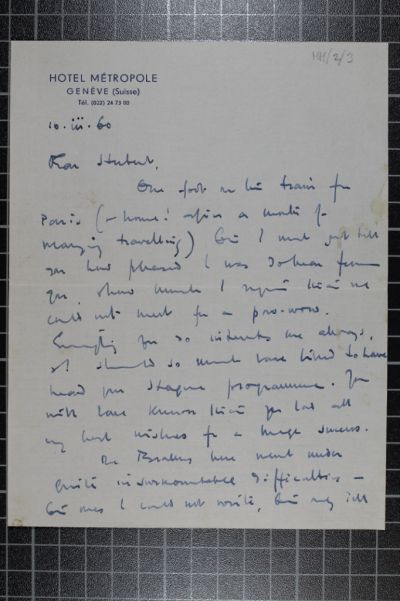 MH/2/3
HOTEL MÉTROPOLE
GENÈVE (Suisse)
Tél. (022) 24 73 00
10. iii. 60
Dear Hubert,
One foot in the train for
Paris (– home! after a month of
travelling) but I must just tell
you how pleased I was to hear from
you, how much I regret that we
could not meet for a pow-wow.
Everything you do interests me always,
& I should so much have liked to have
heard your programme. You
will have known that you had all
my best wishes for a huge success.
The here went under
quite insurmountable difficulties –
but I could not write, but may tell